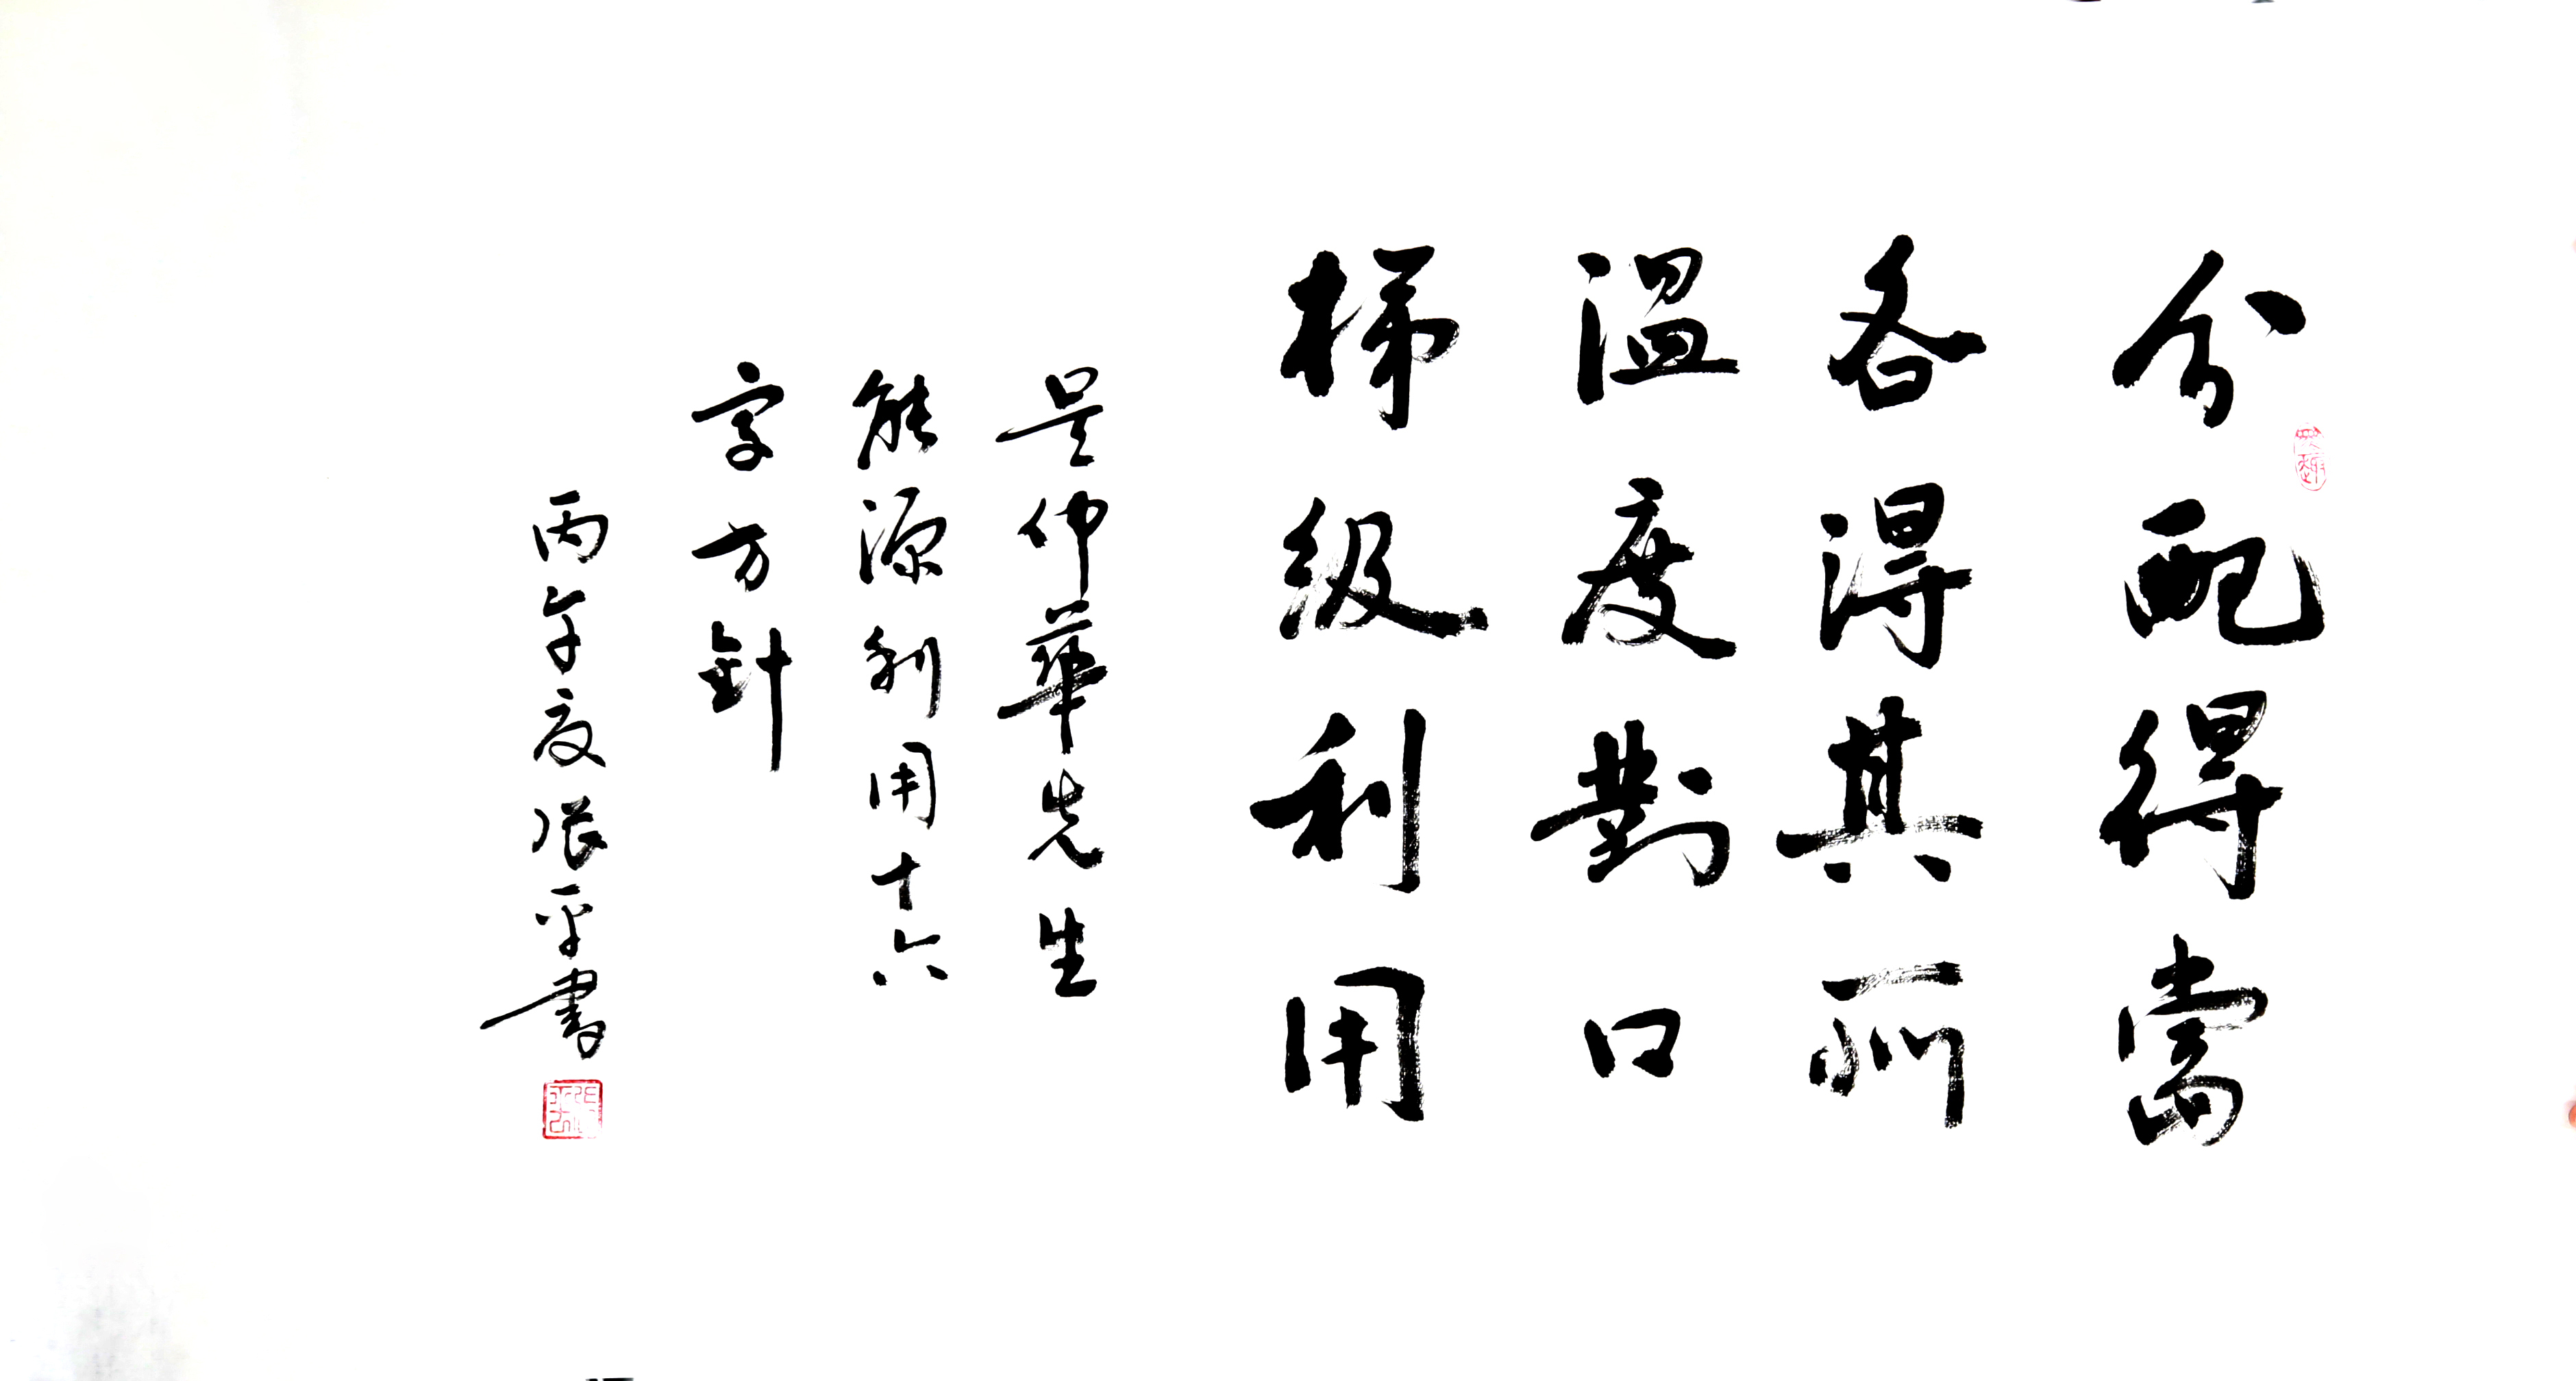 分配得當
各得其所
溫度對口
梯級利用
吴仲華先生
能源利用十六
字方針
丙午夏張平書